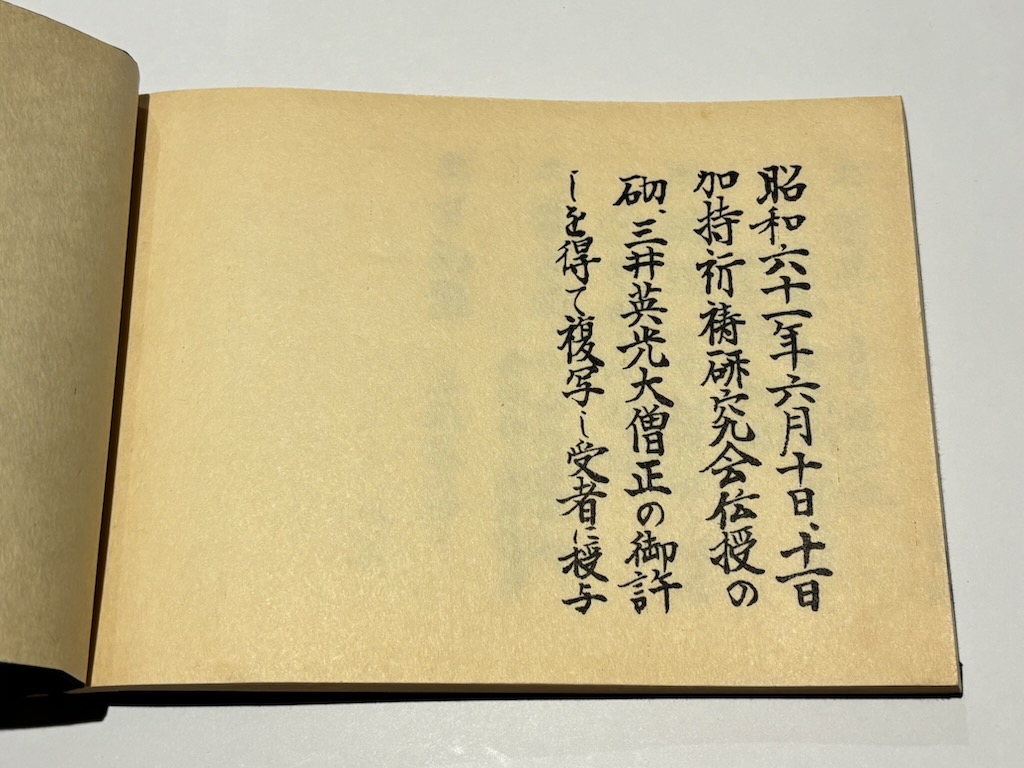 昭和六十一年六月十日、十一日
加持祈祷研究会伝授の
砌、三井英光大僧正の御許
しを得て複写し受者に授与